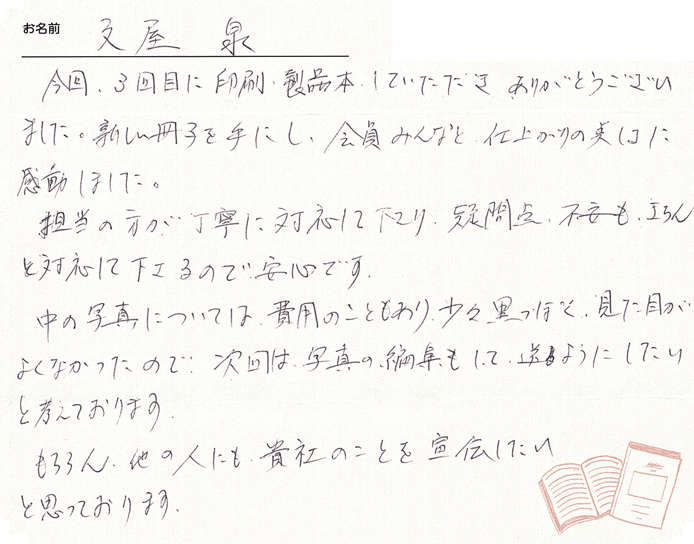 お名前 文屋 泉
今回、3回目に印刷・製品本、していただき ありがとうござい
ました。新しい冊子を手にし、会員みんなと、仕上がりの美しさに
感動しました。
担当の方が丁寧に対応して下さり、疑問点、不安も、きちん
と対応して下さるので安心です。
中の写真については、費用のこともあり、少々黒っぽく、見た目が
よくなかったので、次回は、写真の、編集もして、送るようにしたい
と考えております。
もちろん、他の人にも、貴社のことを宣伝したい
と思っております。